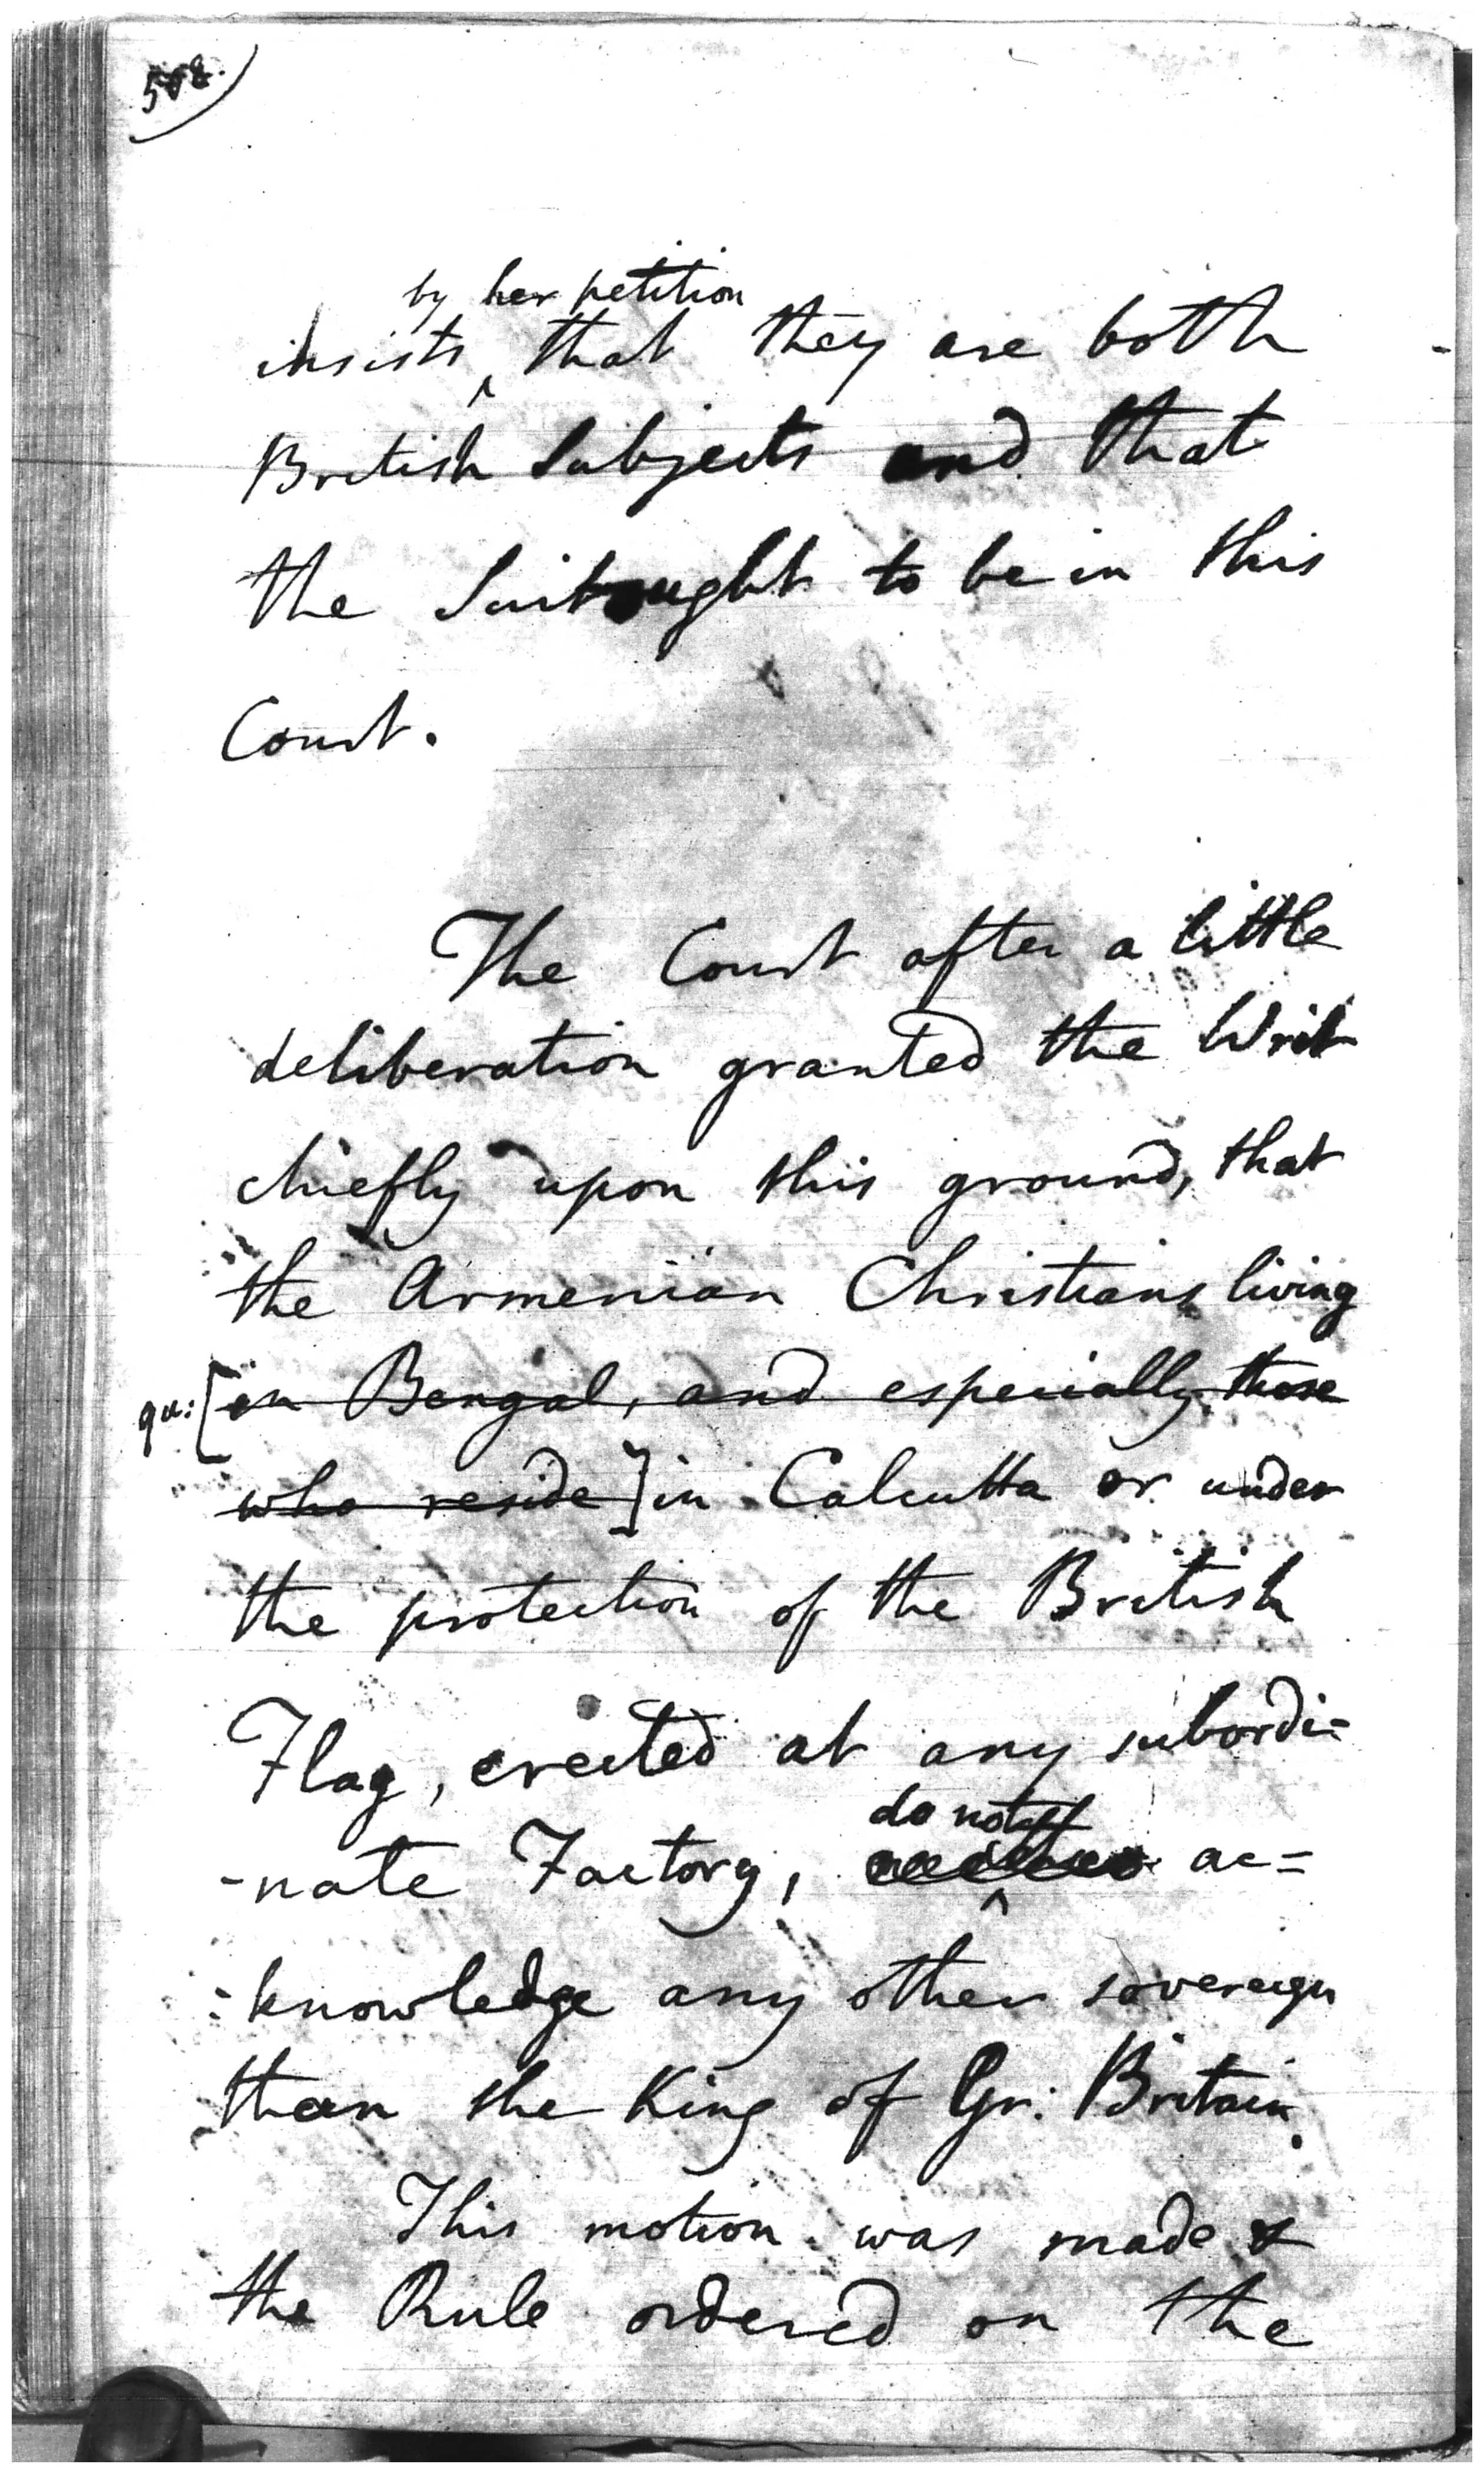 508.
by her petition
insists ^ that they are both
British Subjects and that
the Suit ought to be in this
Court.
The Court after a little
deliberation granted the Writ
chiefly upon this ground, that
the Armenian Christians living
qu: [in Bengal, and especially those
who reside] in Calcutta or under
the protection of the British
Flag, erected at any subordi=
do not
-nate Factory, ^ ac=
=knowledge any other sovereign
than the King of Gr: Britain.
This motion was made &
the Rule ordered on the